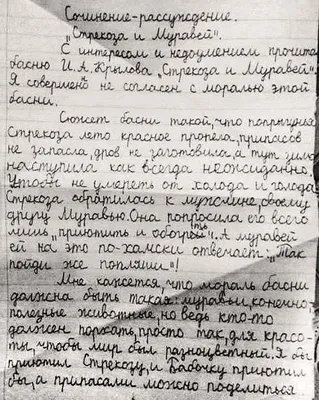 Сочинение-рассуждение.
„Стрекоза и Муравей".
С интересом и недоумением прочитал
басню И.А.Крылова „Стрекоза и Муравей".
Я совершенно не согласен с моралью этой
басни.
Сюжет басни такой, что попрыгунья
Стрекоза лето красное пропела, припасов
не запасла, дров не заготовила, а тут зима
наступила как всегда неожиданно.
Чтобы не умереть от холода и голода
Стрекоза обратилась к мужчине, своему
другу Муравью. Она попросила его всего
лишь „приютить и обогреть". А муравей
ей на это по-хамски отвечает: „Так
пойди же попляши"!
Мне кажется, что мораль басни
должна быть такая: муравьи, конечно,
полезные животные, но ведь кто-то
должен порхать, просто так, для красо-
ты, чтобы мир был разноцветный. Я бы
приютил Стрекозу, и Бабочку приютил
бы, а припасами можно поделиться.